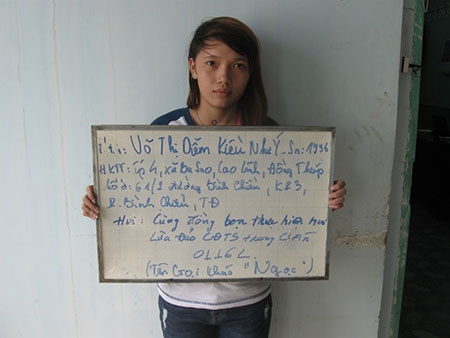 Võ Thị Diễm Kiều Như Ý. Sn: 1996
HKTT: ấp 4, xã Ba Sao, Cao Lãnh, Đồng Tháp
61/2 đường Bình Chiểu, KP3,
P. Bình Chiểu, TĐ
Hvi: Cùng đồng bọn thực hiện hvi
Lừa Đảo CĐTS trong
0116L
(Tên Gọi khác "Ngọc")